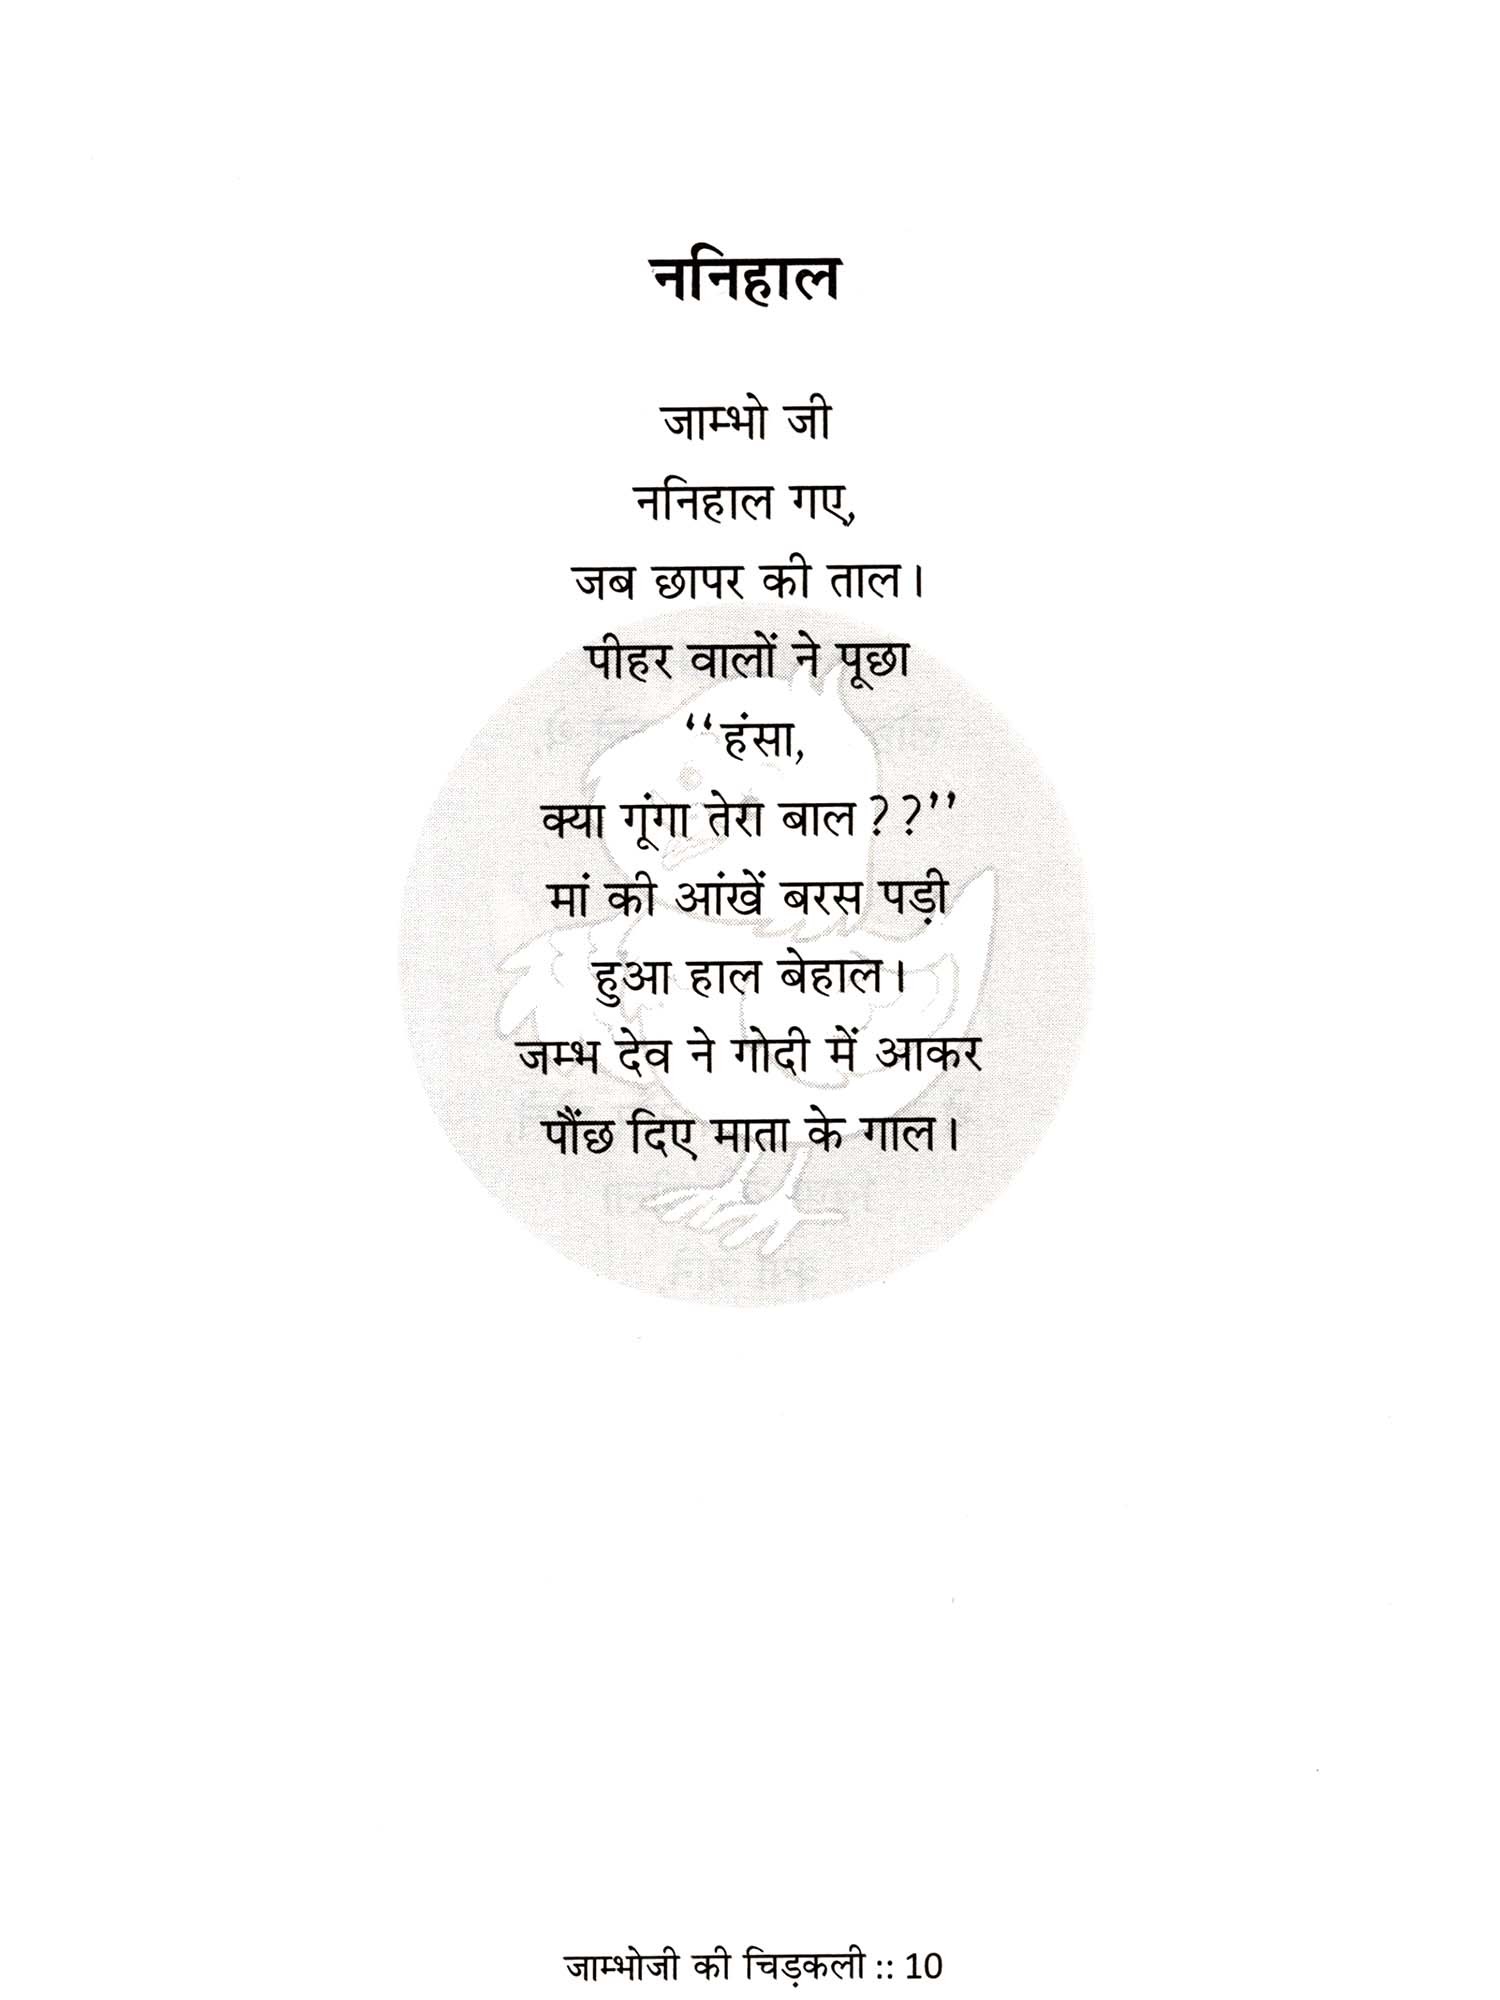 ननिहाल
जाम्भो जी
ननिहाल गए,
जब छापर की ताल।
पीहर वालों ने पूछा
‘‘हंसा,
क्या गूंगा तेरा बाल??’’
मां की आंखें बरस पड़ी
हुआ हाल बेहाल।
जम्भ देव ने गोदी में आकर
पौंछ दिए माता के गाल।
जाम्भोजी की चिड़कली :: 10